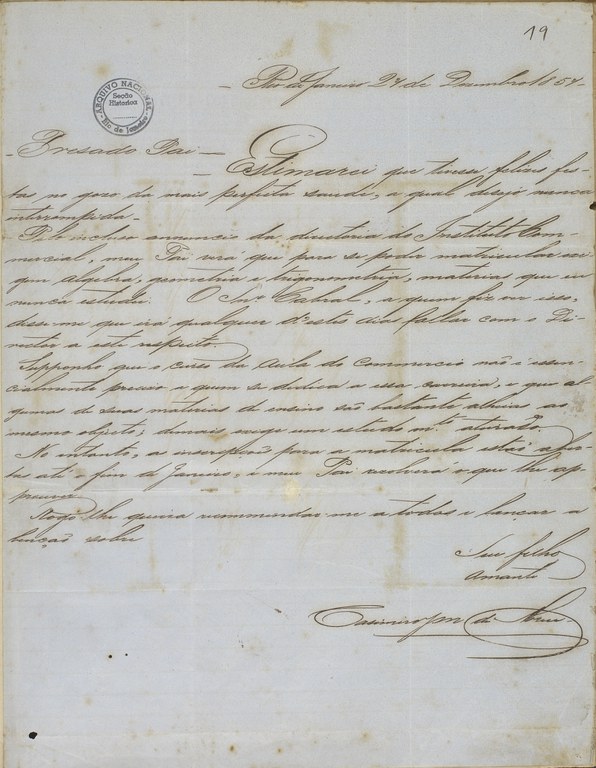 19
ARQUIVO NACIONAL
Secção
Historica
Rio de Janeiro
Rio de Janeiro 27 de Dezembro 1857
Presado Pai
Estimarei que tivesse felizes fes-
tas no goso da mais perfeita saude, a qual desejo nunca
interrompida.
Pelo incluso annuncio da directoria do Instituto Com-
mercial, meu Pai verá que para se poder matricular exi-
gem algebra, geometria e trigonometria, materias que eu
nunca estudei. O Snr Cabral, a quem fiz ver isso,
disse-me que irá qualquer d'estes dias fallar com o Di-
rector a este respeito.
Supponho que o curso da Aula do Commercio não é essen-
cialmente preciso a quem se dedica a essa carreira, e que al-
gumas de suas materias de ensino são bastante alheias ao
mesmo objecto; demais exige um estudo mto aturado.
No entanto, a inscripção para a matricula está aber-
ta até o fim de Janeiro, e meu Pai resolverá o que lhe ap-
prouver.
Rogo-lhe queira recommendar-me a todos e lançar a
benção sobre
Seu filho
amante
Casimiro J M de Abreu